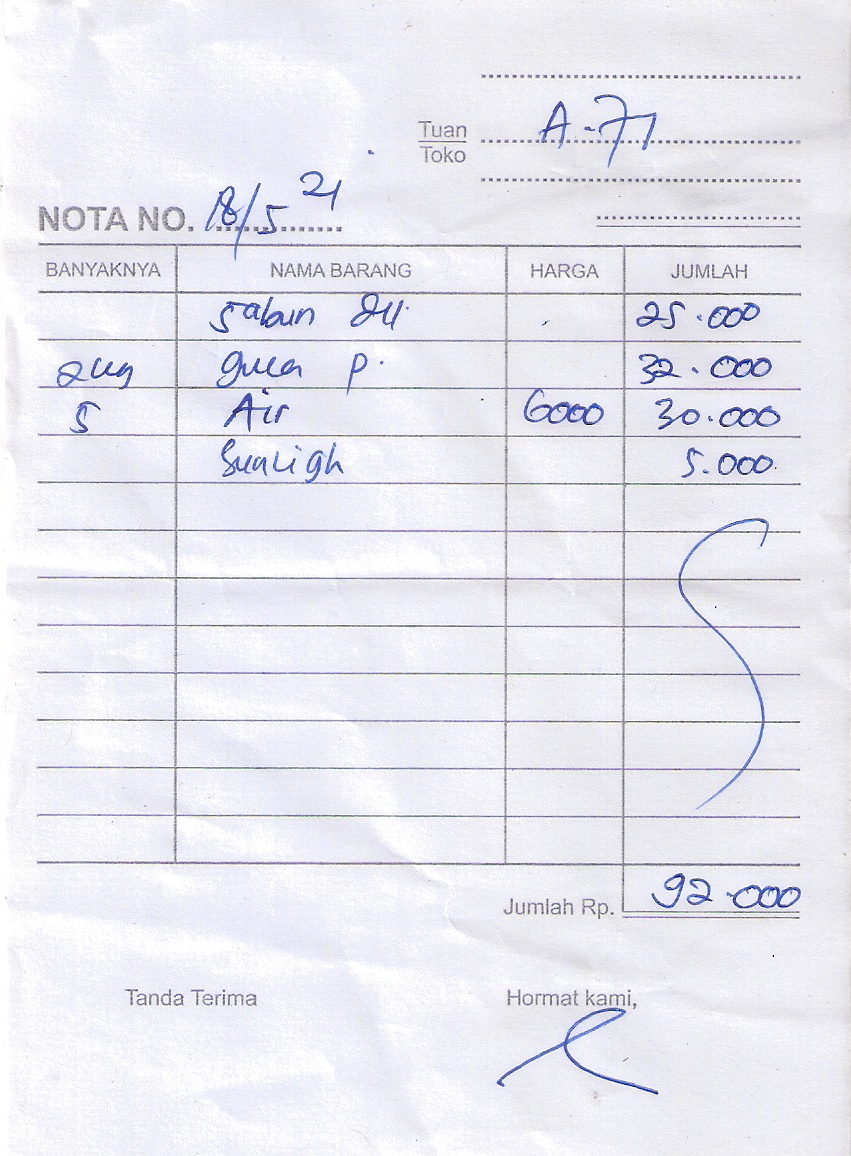 Tuan A-71
Toko
NOTA NO. 18/5 21
BANYAKNYA NAMA BARANG HARGA JUMLAH
Sabun 25.000
2kg gula p. 32.000
5 Air 6000 30.000
Sunligh 5.000
Jumlah Rp. 92.000
Tanda Terima Hormat kami,